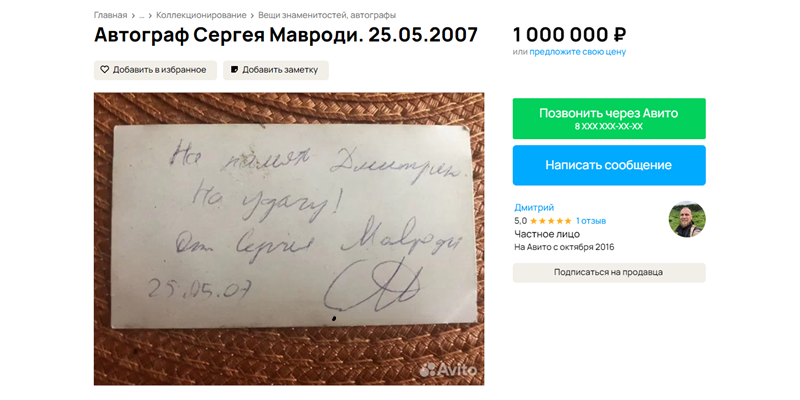 Главная > ... > Коллекционирование > Вещи знаменитостей, автографы
Автограф Сергея Мавроди. 25.05.2007
1 000 000 ₽
или предложите свою цену
Добавить в избранное
Добавить заметку
На памят Дмитрею.
На удачу!
От Сергея Мавроди
25.05.07
Avito
Позвонить через Авито
8 XXX XXX-XX-XX
Написать сообщение
Дмитрий
5,0 ★★★★★ 1 отзыв
Частное лицо
На Авито с октября 2016
Подписаться на продавца